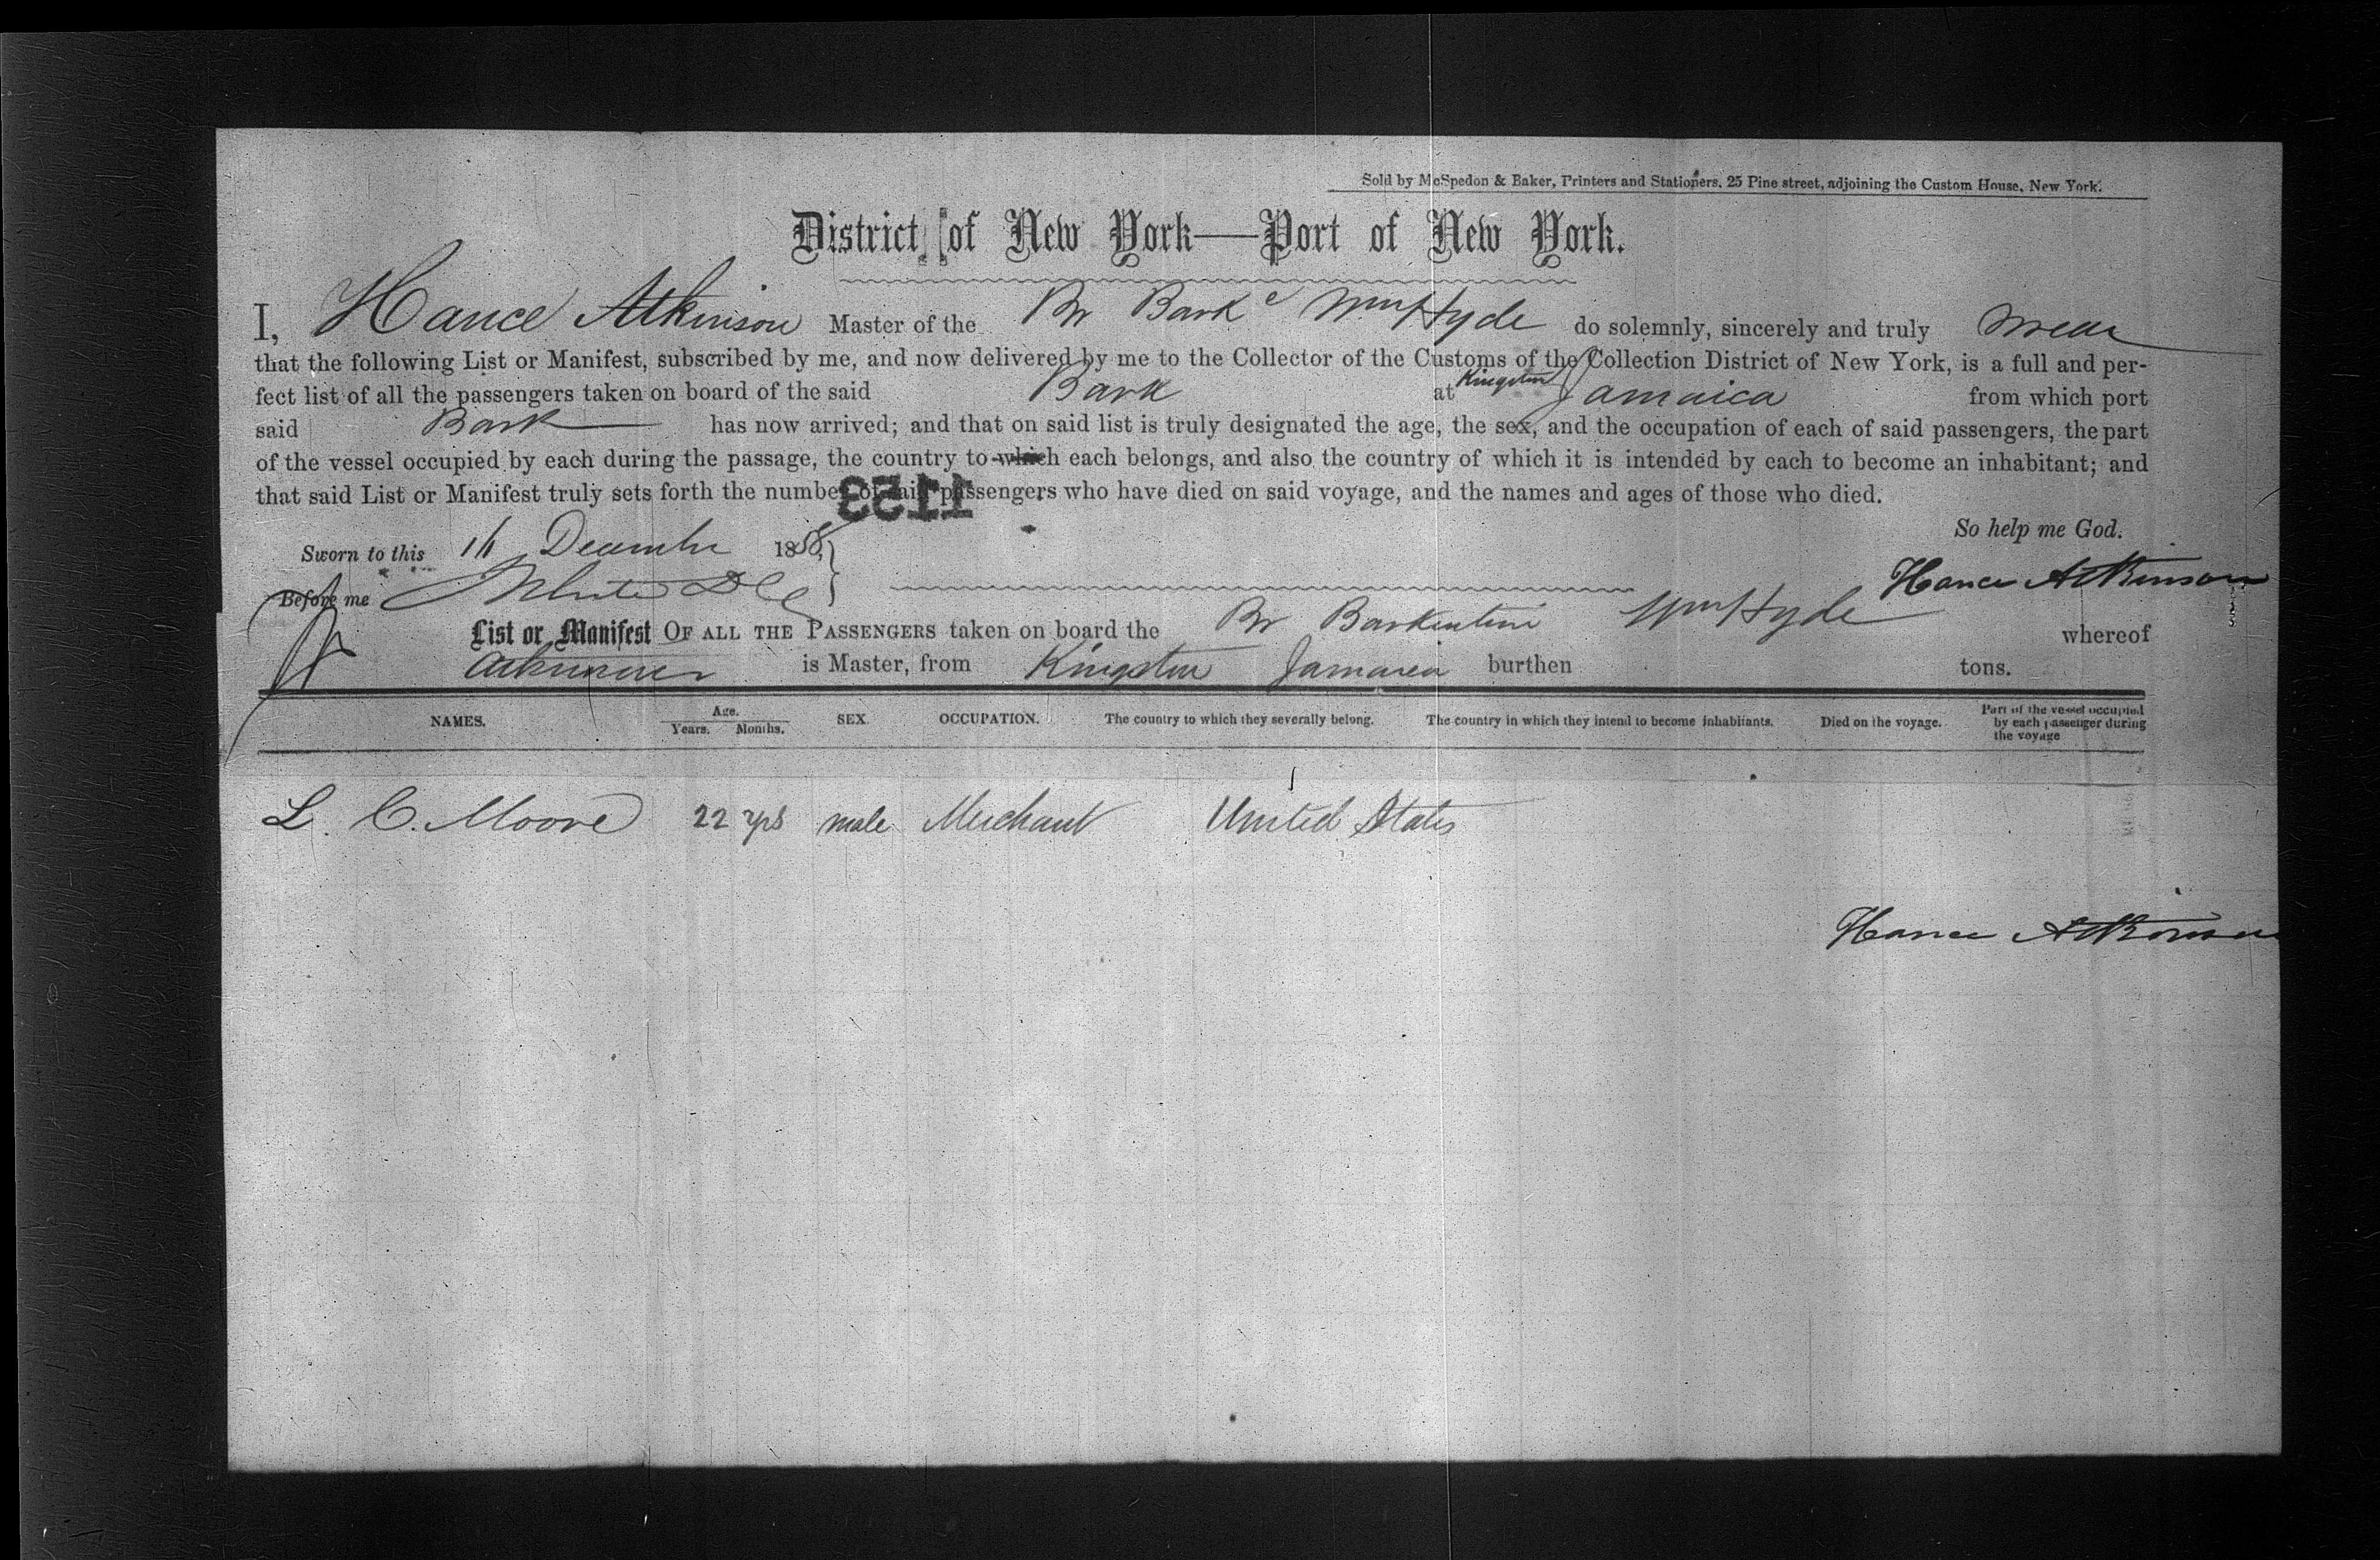 Sold by McSpedon & Baker, Printers and Stationers, 25 Pine street, adjoining the Custom House, New York.
District of New York—Port of New York.
I, Hance Atkinson Master of the Br Barke Wm Hyde do solemnly, sincerely and truly swear
that the following List or Manifest, subscribed by me, and now delivered by me to the Collector of the Customs of the Collection District of New York, is a full and per-
fect list of all the passengers taken on board of the said Bark at Kingston Jamaica from which port
said Bark has now arrived; and that on said list is truly designated the age, the sex, and the occupation of each of said passengers, the part
of the vessel occupied by each during the passage, the country to which each belongs, and also the country of which it is intended by each to become an inhabitant; and
that said List or Manifest truly sets forth the number of said passengers who have died on said voyage, and the names and ages of those who died.
1153
So help me God.
Sworn to this 16 December 1858,
Before me Hance Atkinson
List or Manifest OF ALL THE PASSENGERS taken on board the Br Barkentine Wm Hyde whereof
Atkinson is Master, from Kingston Jamaica burthen tons.
NAMES. Age. Years. Months. SEX. OCCUPATION. The country to which they severally belong. The country in which they intend to become inhabitants. Died on the voyage. Part of the vessel occupied by each passenger during the voyage
L. C. Moore 22 yrs male Merchant United States
Hance Atkinson